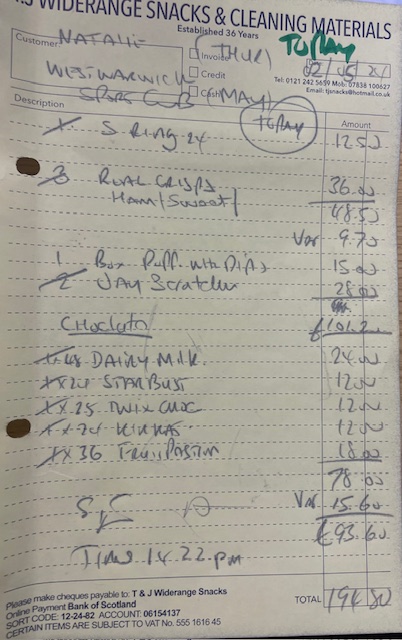 .S WIDERANGE SNACKS & CLEANING MATERIALS
Established 36 Years
Customer: NATALIE
(THUR) TODAY
Invoice
Credit
Cash (MAY)
02/05/24
Tel: 0121 242 5659 Mob: 07838 100627
Email: tjsnacks@hotmail.co.uk
WEST WARWICK
SPORTS CLUB
TODAY
Description Amount
1 S. RING 24 12 50
3 ROYAL CRISPS 36.00
HAM/SWEET/ 48.50
Var 9.70
1 Box Puff with Dips 15 00
2 JAY Scratchin 28 00
£101.20
CHOCLATE
x 48 DAIRY MILK. 24 00
x 24 STARBUST 12 00
x 25 TWIX CHOC 12 00
x 24 KITKAT 12 00
x 36 18 00
78 00
Var 15.60
£93.60
TIME 14.22.pm
TOTAL 194 80
Please make cheques payable to: T & J Widerange Snacks
Online Payment Bank of Scotland
SORT CODE: 12-24-82 ACCOUNT: 06154137
CERTAIN ITEMS ARE SUBJECT TO VAT No. 555 1616 45